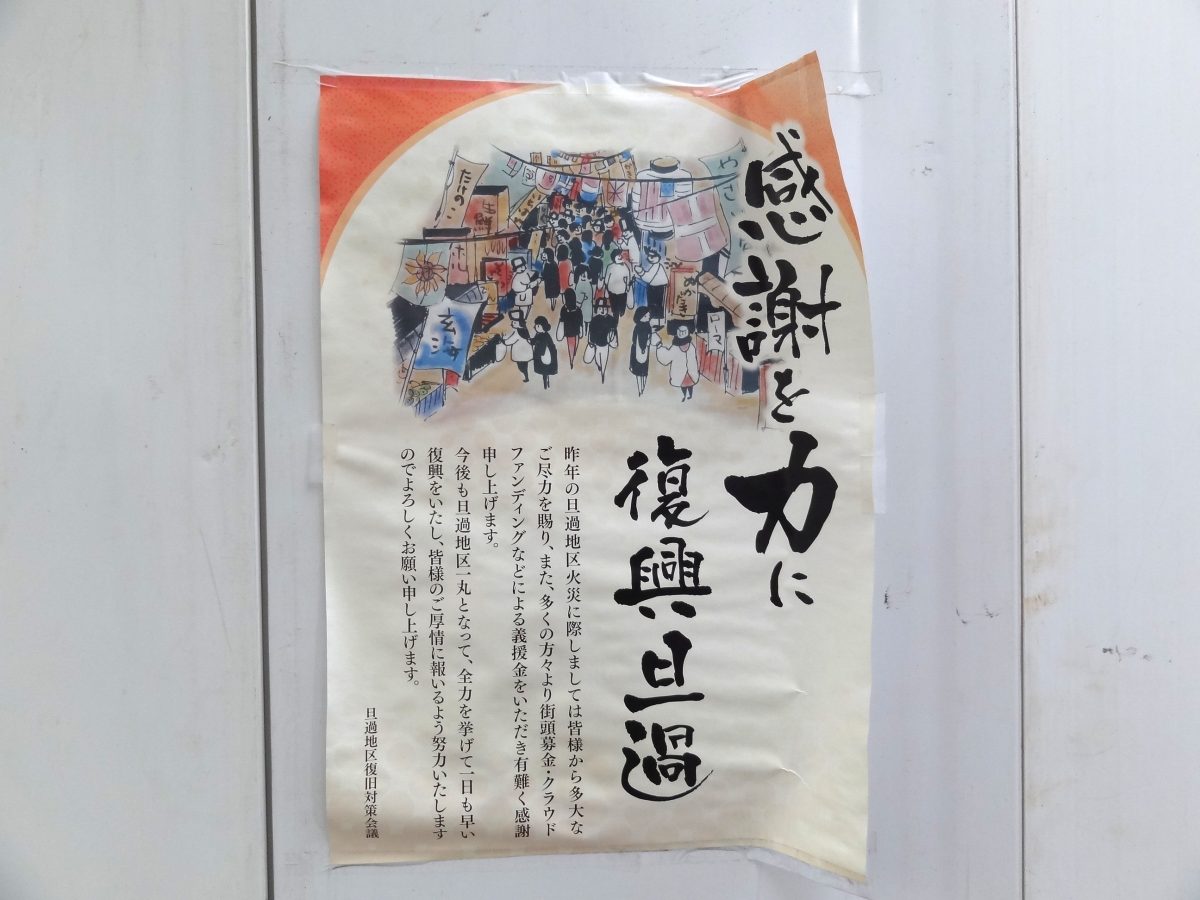 感謝を力に
復興旦過
昨年の旦過地区火災に際しましては皆様から多大な
ご尽力を賜り、また、多くの方々より街頭募金・クラウド
ファンディングなどによる義援金をいただき有難く感謝
申し上げます。
今後も旦過地区一丸となって、全力を挙げて一日も早い
復興をいたし、皆様のご厚情に報いるよう努力いたします
のでよろしくお願い申し上げます。
旦過地区復旧対策会議
たけのこ
生鮮
やさい
玄海
ぬかだき
ローマ